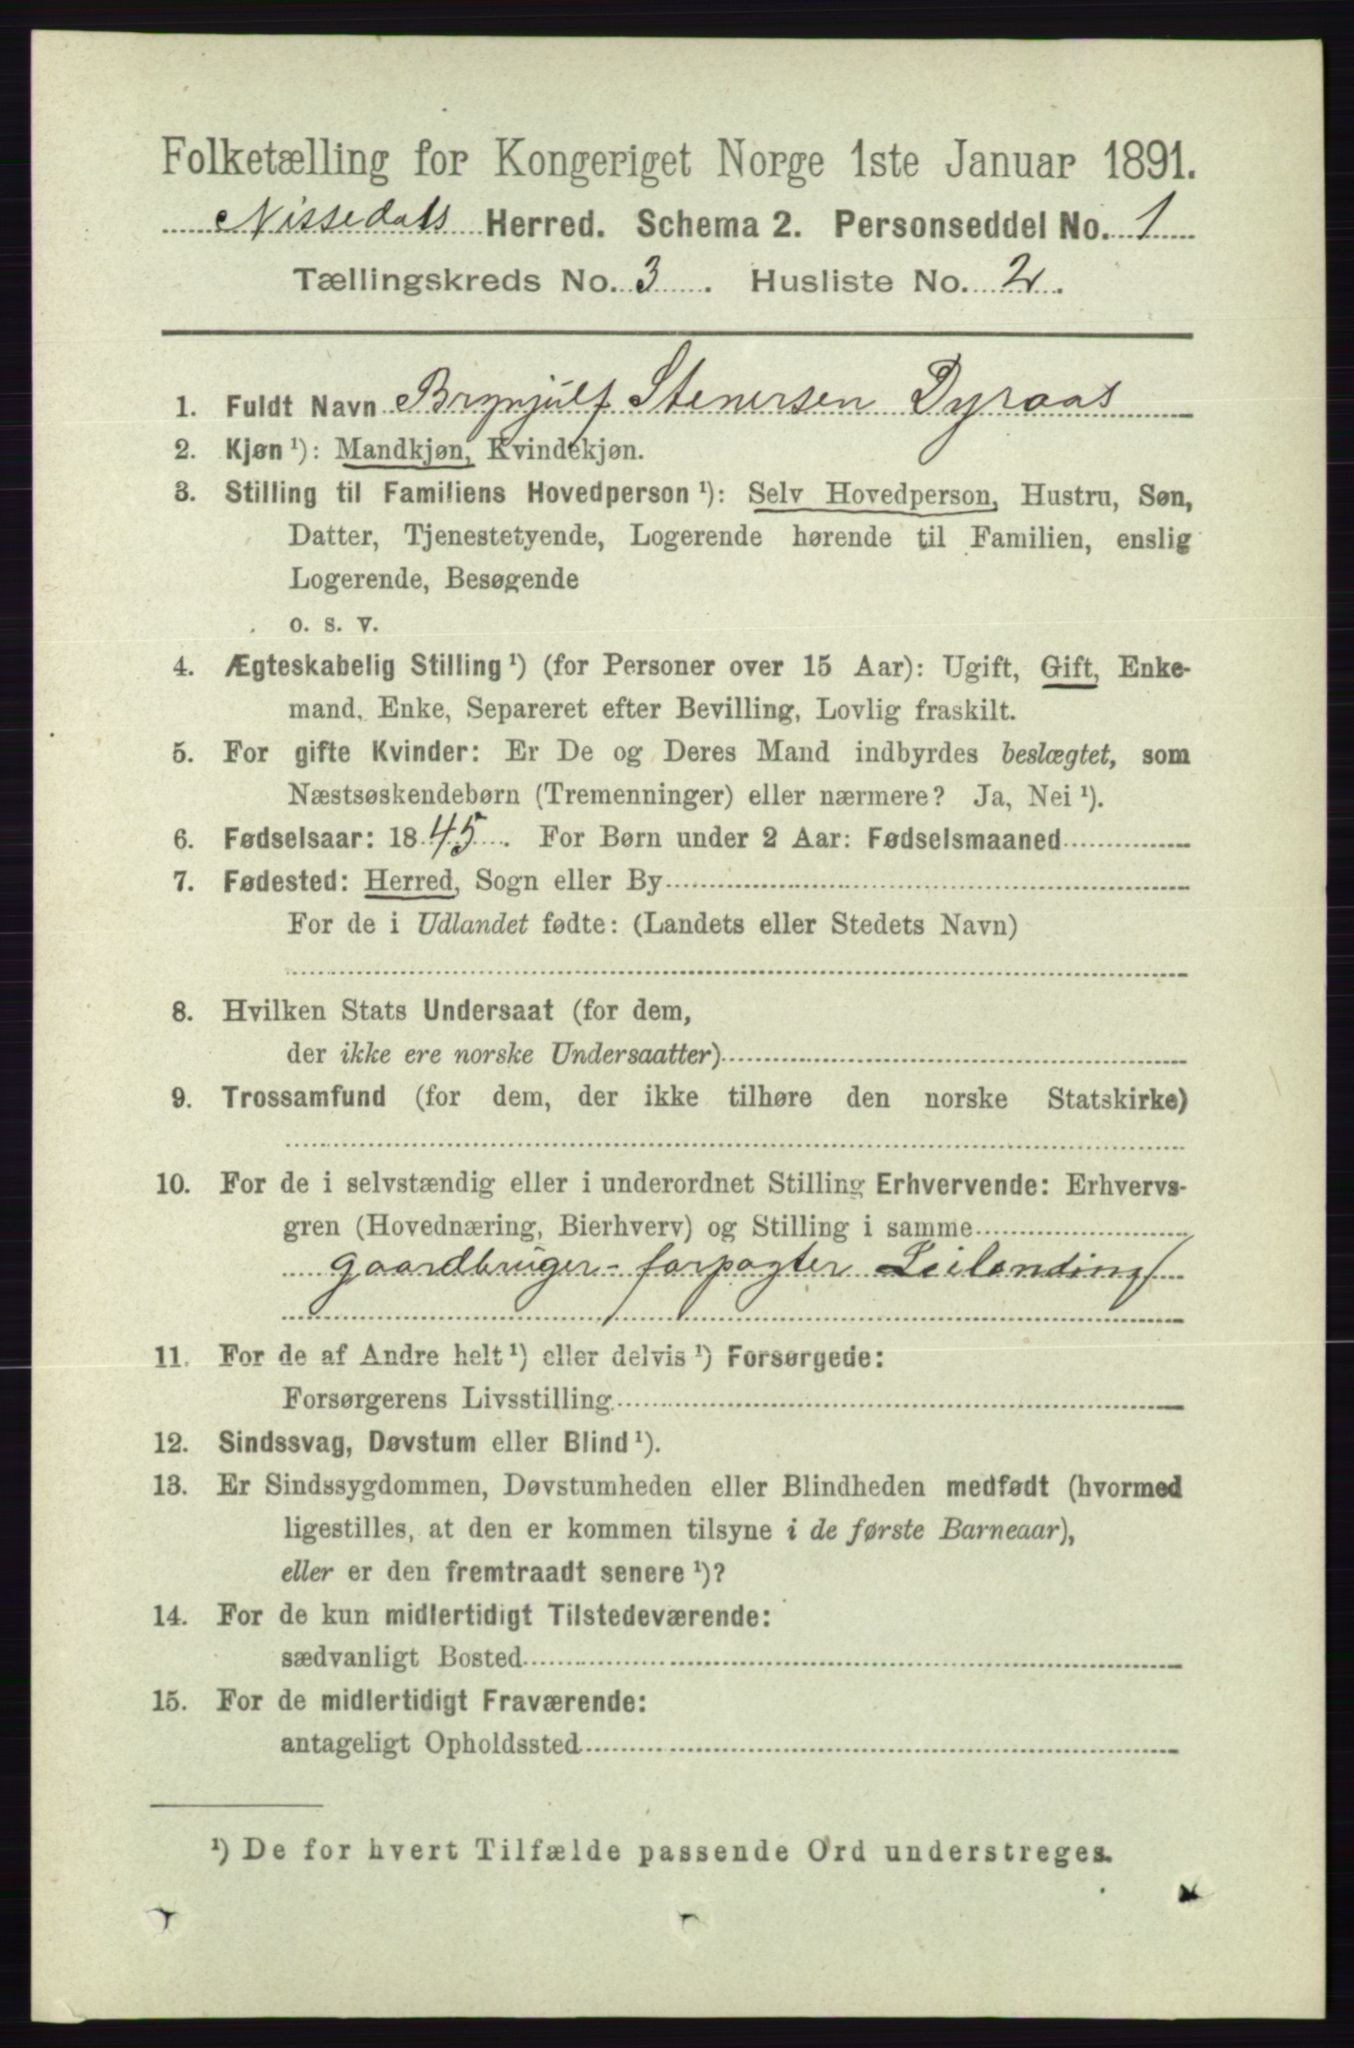 Folketælling for Kongeriget Norge 1ste Januar 1891.
Nissedals Herred. Schema 2. Personseddel No. 1
Tællingskreds No. 3. Husliste No. 2.
1. Fuldt Navn Brynjulf Stenersen Dyraas
2. Kjøn ¹): Mandkjøn, Kvindekjøn.
3. Stilling til Familiens Hovedperson ¹): Selv Hovedperson, Hustru, Søn,
Datter, Tjenestetyende, Logerende hørende til Familien, enslig
Logerende, Besøgende
o. s. v.
4. Ægteskabelig Stilling ¹) (for Personer over 15 Aar): Ugift, Gift, Enke-
mand, Enke, Separeret efter Bevilling, Lovlig fraskilt.
5. For gifte Kvinder: Er De og Deres Mand indbyrdes beslægtet, som
Næstsøskendebørn (Tremenninger) eller nærmere? Ja, Nei ¹).
6. Fødselsaar: 1845. For Børn under 2 Aar: Fødselsmaaned
7. Fødested: Herred, Sogn eller By
For de i Udlandet fødte: (Landets eller Stedets Navn)
8. Hvilken Stats Undersaat (for dem,
der ikke ere norske Undersaatter)
9. Trossamfund (for dem, der ikke tilhøre den norske Statskirke)
10. For de i selvstændig eller i underordnet Stilling Erhvervende: Erhvervs-
gren (Hovednæring, Bierhverv) og Stilling i samme
gaardbruger - forpagter Leilending/
11. For de af Andre helt ¹) eller delvis ¹) Forsørgede:
Forsørgerens Livsstilling
12. Sindssvag, Døvstum eller Blind ¹).
13. Er Sindssygdommen, Døvstumheden eller Blindheden medfødt (hvormed
ligestilles, at den er kommen tilsyne i de første Barneaar),
eller er den fremtraadt senere ¹)?
14. For de kun midlertidigt Tilstedeværende:
sædvanligt Bosted
15. For de midlertidigt Fraværende:
antageligt Opholdssted
¹) De for hvert Tilfælde passende Ord understreges.